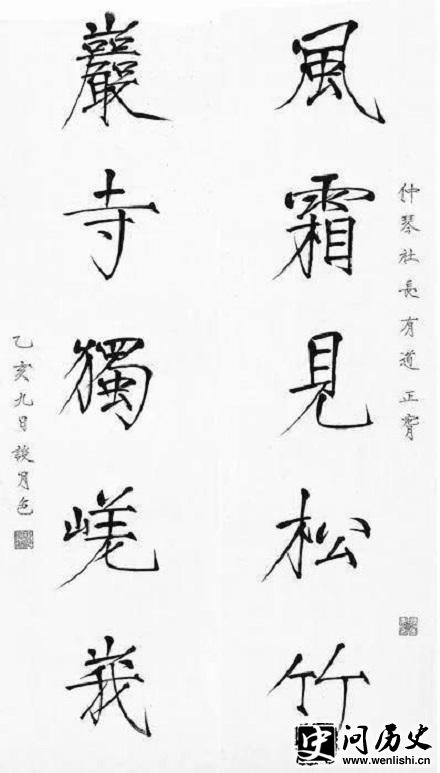 仲琴社長有道正
風霜見松竹
巖寺獨嵯峩
乙亥九日談月色
史问历史
www.wenlishi.cn